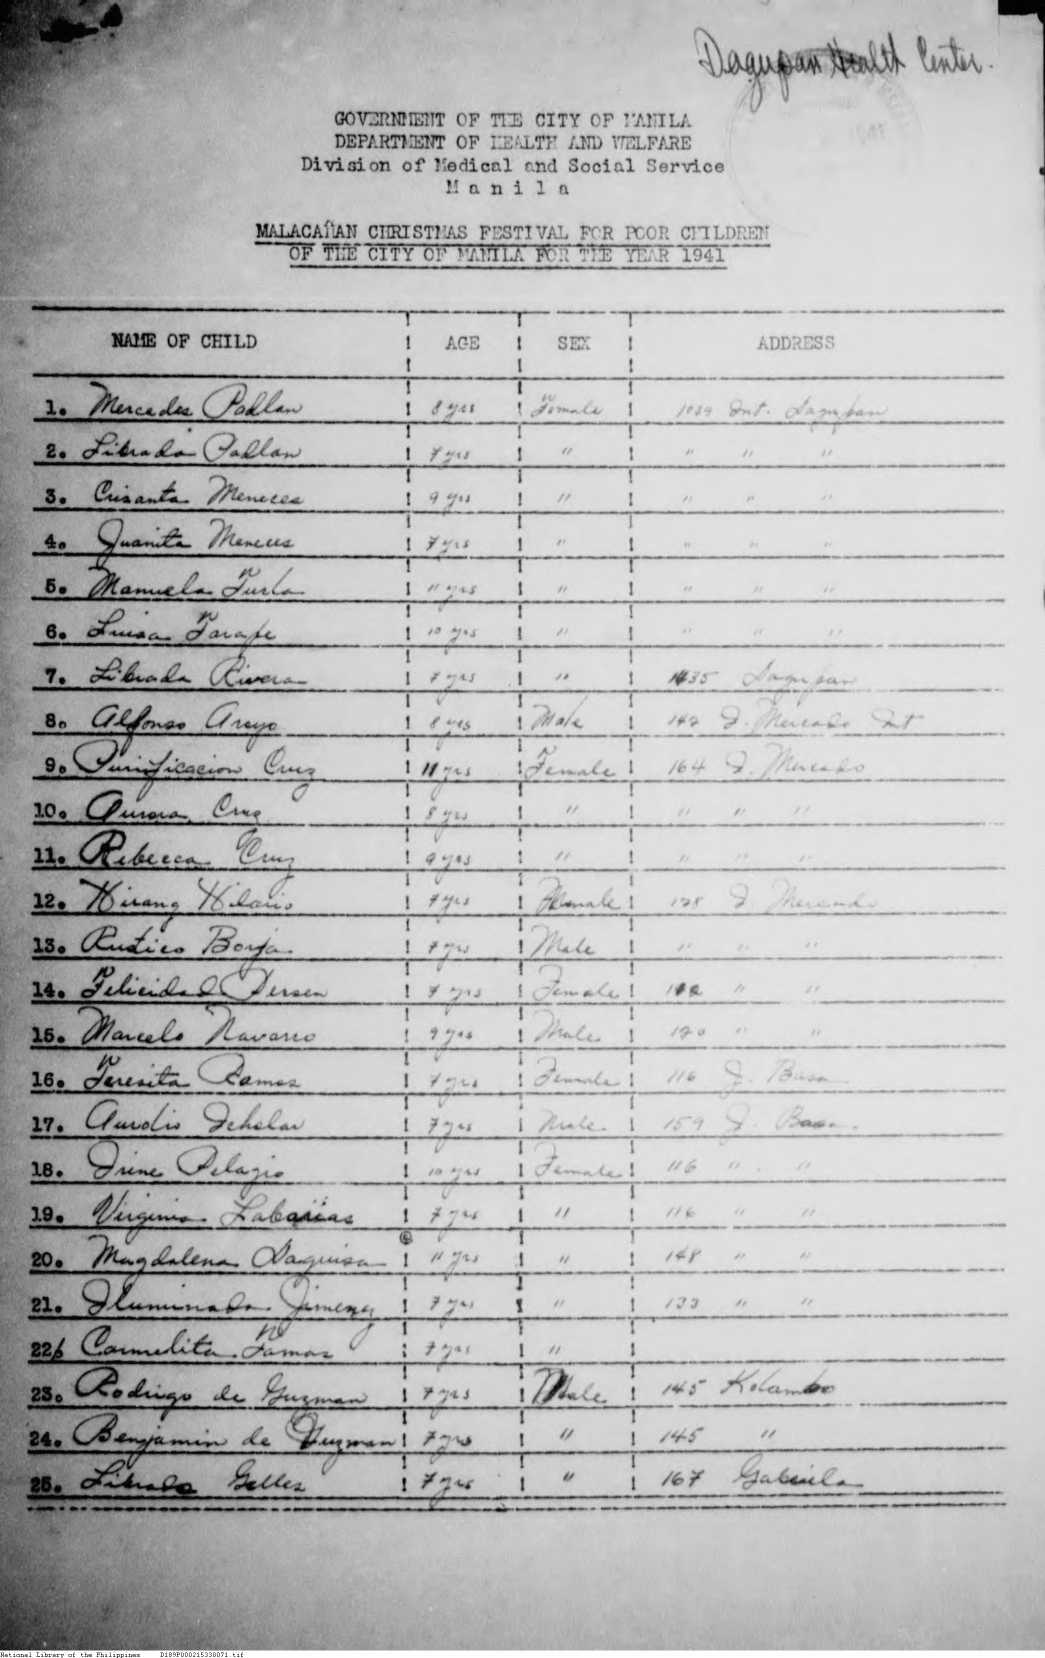 Dagupan Health Center.
GOVERNMENT OF THE CITY OF MANILA
DEPARTMENT OF HEALTH AND WELFARE
Division of Medical and Social Service
M a n i l a
MALACAÑAN CHRISTMAS FESTIVAL FOR POOR CHILDREN
OF THE CITY OF MANILA FOR THE YEAR 1941
NAME OF CHILD AGE SEX ADDRESS
1. Mercedes Padlan 8 yrs Female 1039 Int. Dagupan
2. Librada Padlan 7 yrs " " " "
3. Crisanta Meneces 9 yrs " " " "
4. Juanita Meneces 7 yrs " " " "
5. Manuela Turla 11 yrs " " " "
6. Luisa 10 yrs " " " "
7. Librada Rivera 7 yrs " 1435 Dagupan
8. Alfonso Aroyo 8 yrs Male 142 J. Mercado Int
9. Purificacion Cruz 11 yrs Female 164 J. Mercado
10. Aurora Cruz 8 yrs " " " "
11. Rebecca Cruz 9 yrs " " " "
12. Hirang Hilario 7 yrs Female 128 J. Mercado
13. Rustico Borja 7 yrs Male " " "
14. Felicidad 7 yrs Female " "
15. Marcelo Navarro 9 yrs Male 120 " "
16. Teresita Ramos 7 yrs Female 116 J. Basa
17. 7 yrs Male 159 J. Basa.
18. Irene Pelagio 10 yrs Female 116 " . "
19. Virginia Labarias 7 yrs " 116 " "
20. Magdalena Daquisa 11 yrs " 148 " "
21. Iluminada Jimenez 7 yrs " 133 " "
22. Carmelita Tamas 7 yrs "
23. Rodrigo de Guzman 7 yrs Male 145 Kolambo
24. Benjamin de Guzman 7 yrs " 145 "
25. Librado Gelles 7 yrs " 167 Gabriela
National Library of the Philippines D189P000215330071.tif